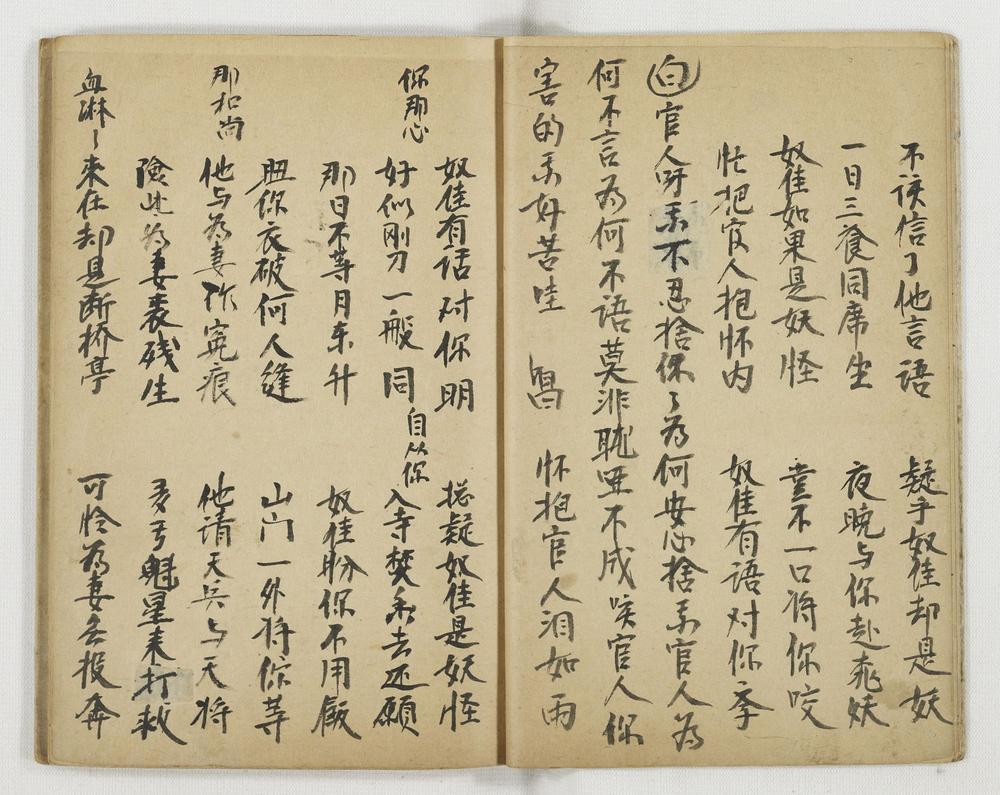 不该信了他言语 疑乎奴隹却是妖
一日三飡同席坐 夜晚与你赴𠒇妖
奴隹如果是妖怪 岂不一口将你咬
忙把官人抱怀内 奴隹有语对你季
白 官人呀 奈不忍捨你〻为何安心捨奈官人为
何不言为何不语莫非聋哑不成唉官人你
害的奈好苦哇 唱 怀抱官人泪如雨
奴隹有话对你明 总疑奴隹是妖怪
你那心好似刚刀一般同 自从你入寺焚香去还愿
那日不等月东升 奴隹盼你不用飯
扭你衣破何人缝 山门一外将你等
那和尚他与为妻作冤痕 他请天兵与天将
险些为妻丧残生 多亏魁星来打救
血淋〻来在却是断桥亭 可怜为妻無投奔